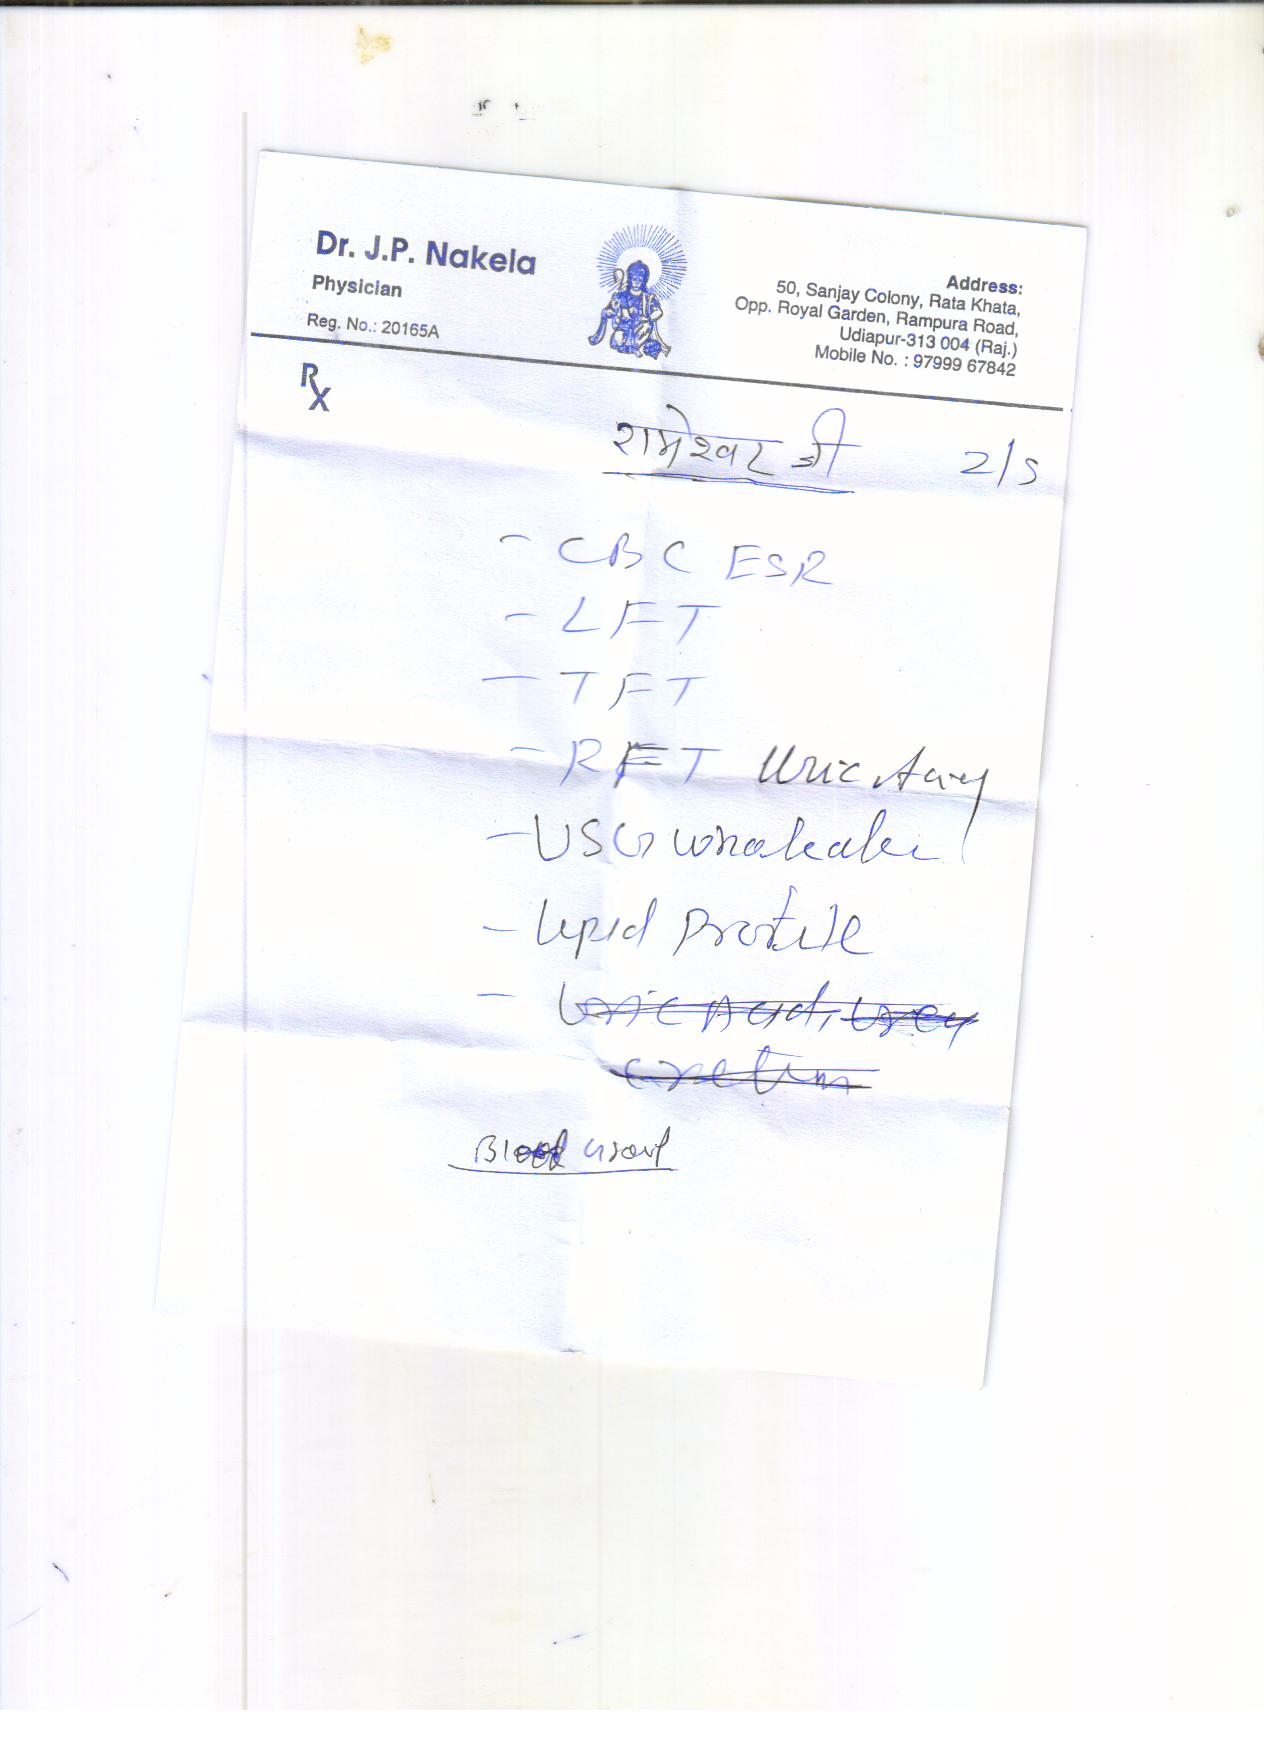 Dr. J.P. Nakela
Physician
Reg. No.: 20165A
Address:
50, Sanjay Colony, Rata Khata,
Opp. Royal Garden, Rampura Road,
Udiapur-313 004 (Raj.)
Mobile No. : 97999 67842
Rx
रामेश्वर जी 2/5
- CBC ESR
- LFT
- TFT
- RFT Uric
- USG
- Lipid Profile
- Uric Acid, urea
Blood Group